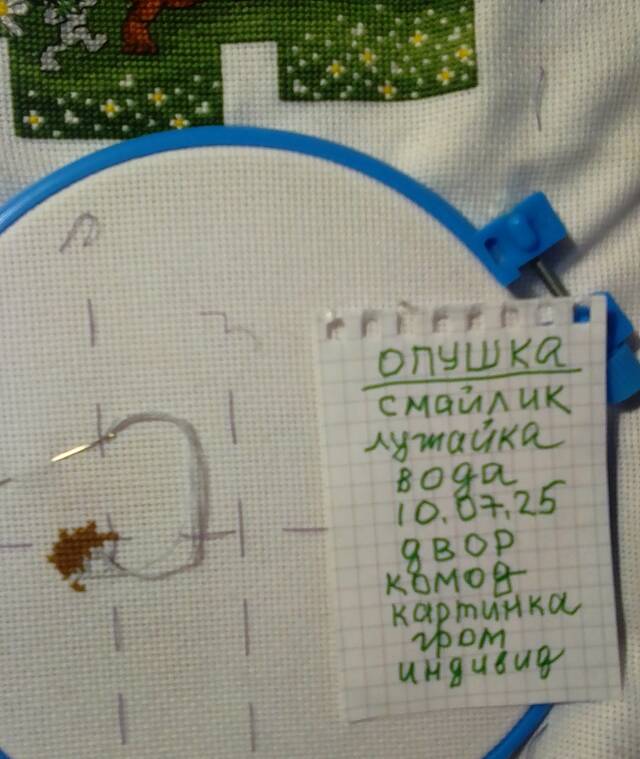 ОПУШКА
смайлик
лужайка
вода
10.07.25
двор
комод
картинка
гром
индивид